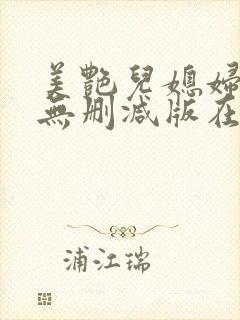 美艷兒媳婦
無刪減版在
浦江瑞